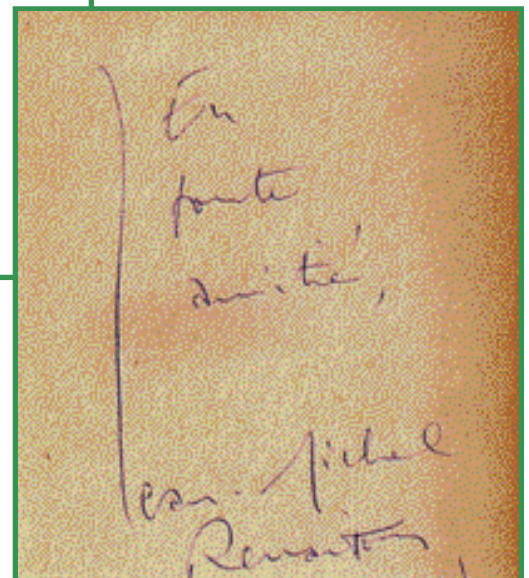 En
toute
amitié,
Jean-Michel
Renaitour